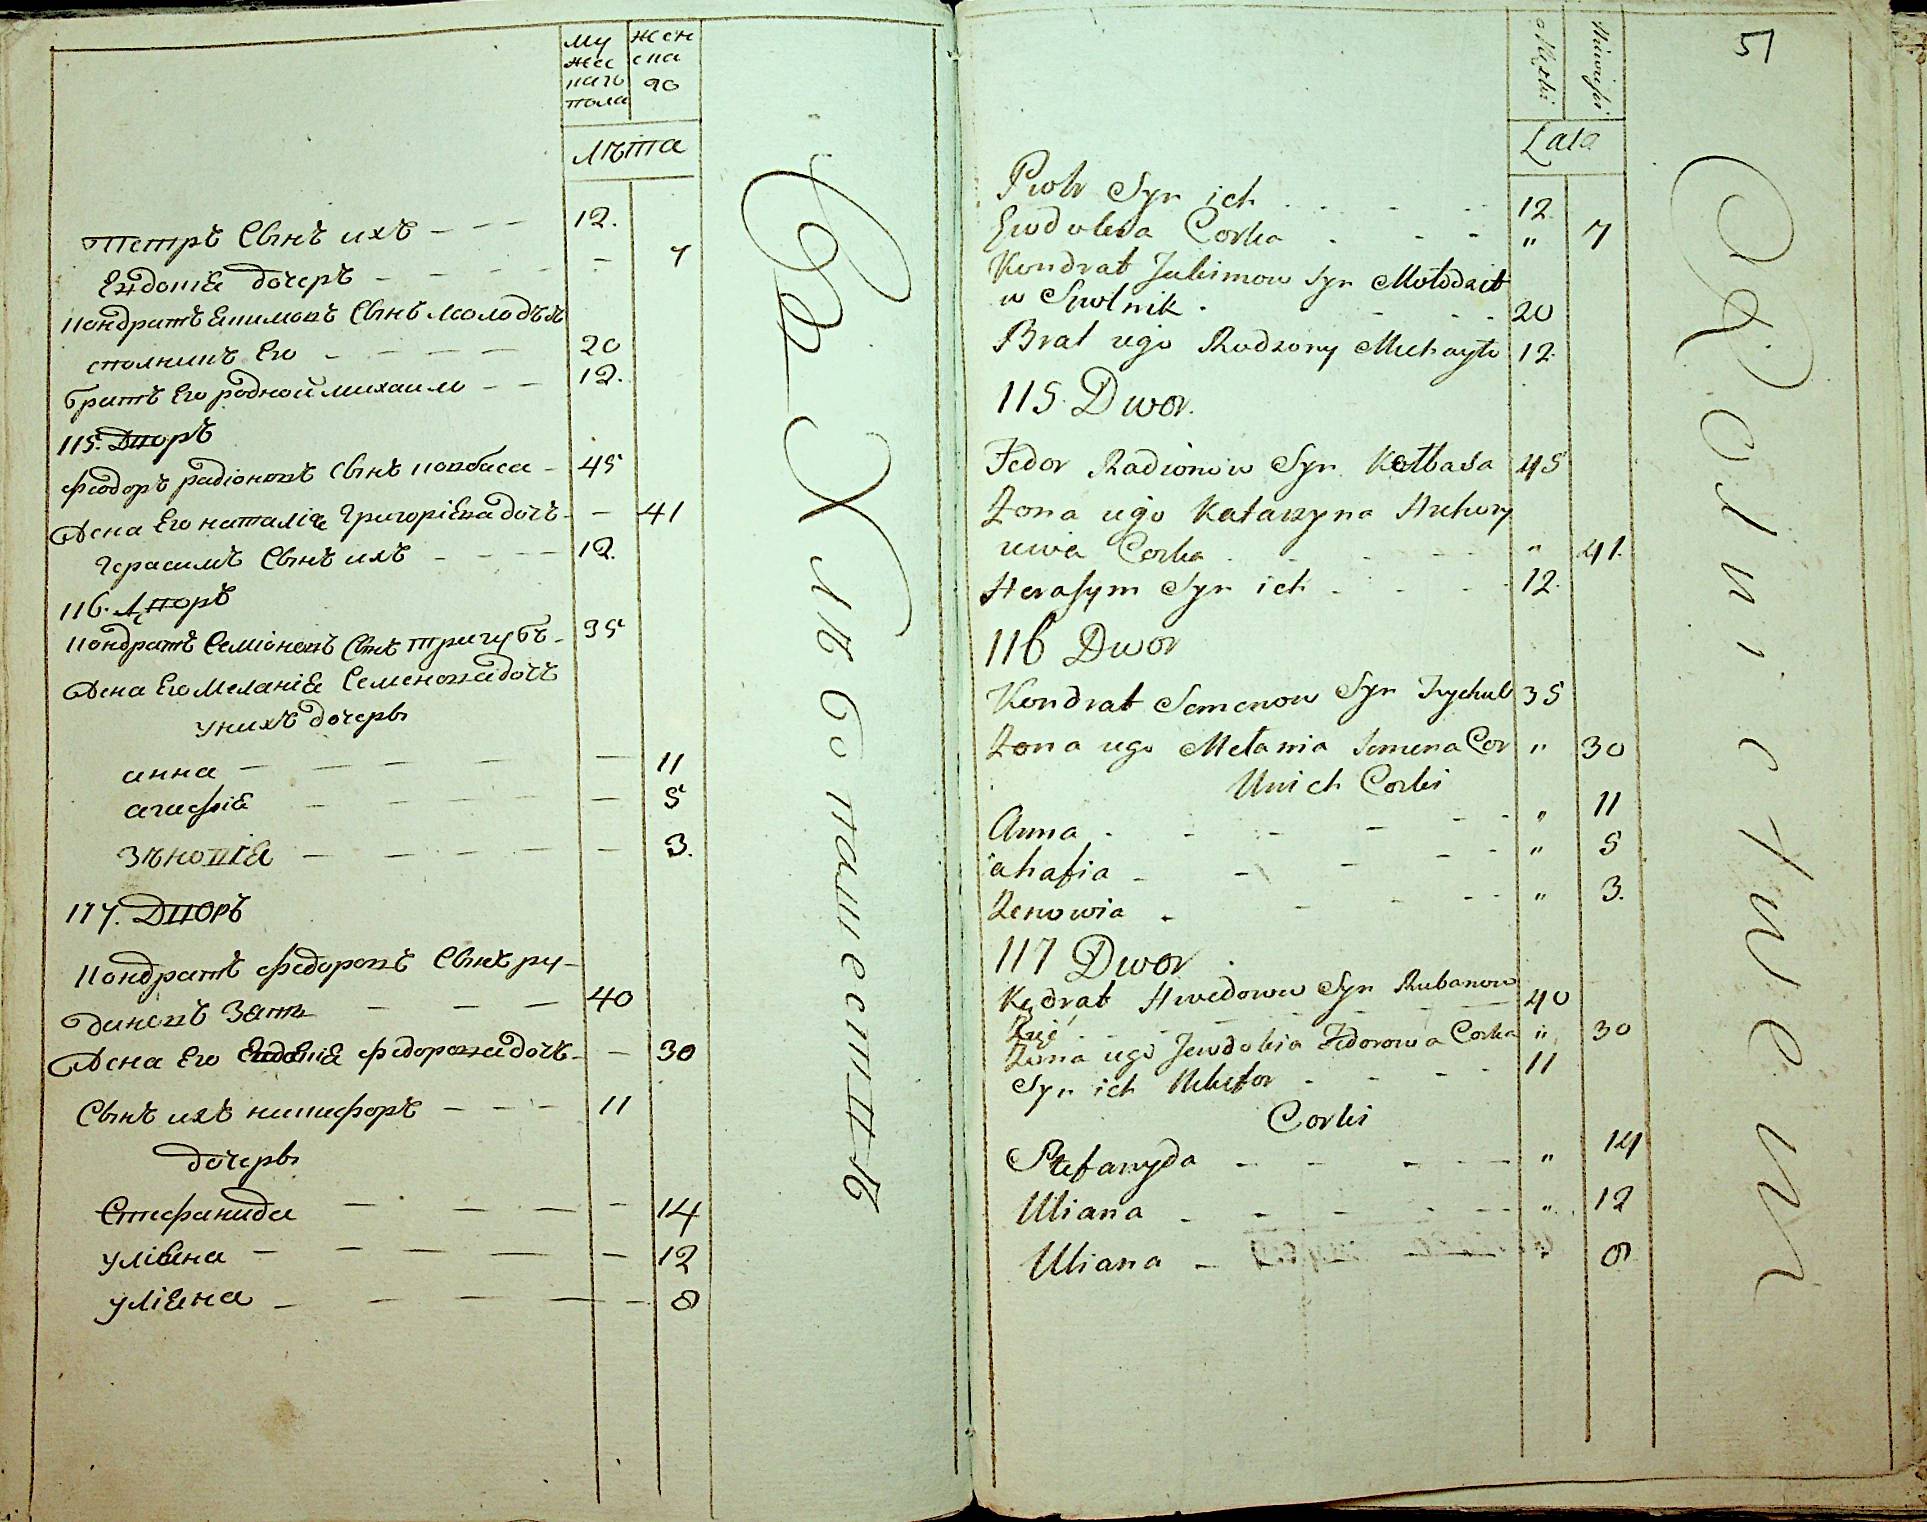 му
жес
каго
пола
жен
ска
го
лѣта
Петръ Сынъ ихъ 12.
Евдокіѧ дочеръ 7
Кондратъ Екимовъ Сынъ Молодѣкъ
сполникъ Его 20
братъ Его родной михаило 12.
115. Дворъ
Феодоръ радіоновъ Сынъ ковбаса 45
Жена Его наталіѧ Григоріева дочъ 41
Герасимъ Сынъ ихъ 12.
116. Дворъ
Кондратъ Семіоновъ Сынъ тригубъ 35
Жена Его Меланіѧ Семенова дочъ
У нихъ дочеры
анна 11
агафіѧ 5
Зѣновіѧ 3.
117. Дворъ
Кондратъ Федоровъ Сынъ ру-
Зять 40
Жена Его Евдокіѧ Федорова дочъ 30
Сынъ ихъ никифоръ 11
дочеры
Стефанида 14
уліѧна 12
уліѧна 8
51
Męski
Lata
Piotr Syn ich 12.
Ewdokia Corka " 7
Kondrat Jakimow Syn Mołodzik
w Spolnik 20
Brat iego Rodzony Michayło 12.
115 Dwor.
Fedor Radionow Syn Kołbasa 45
Zona iego Katarzyna Hrehory
iewa Corka " 41.
Herasym Syn ich 12.
116 Dwor
Kondrat Semenow Syn Trychub 35
Zona iego Mełania Semena Cor " 30
U nich Corki
Anna " 11
ahafia " 5
Zenowia " 3.
117 Dwor
Kędrat Hwedorow Syn Rubanow
Zięć 40
Zona iego Jewdokia Fedorowa Corka " 30
Syn ich Nikifor 11
Corki
Stefanyda " 14
Uliana " 12
Uliana " 8